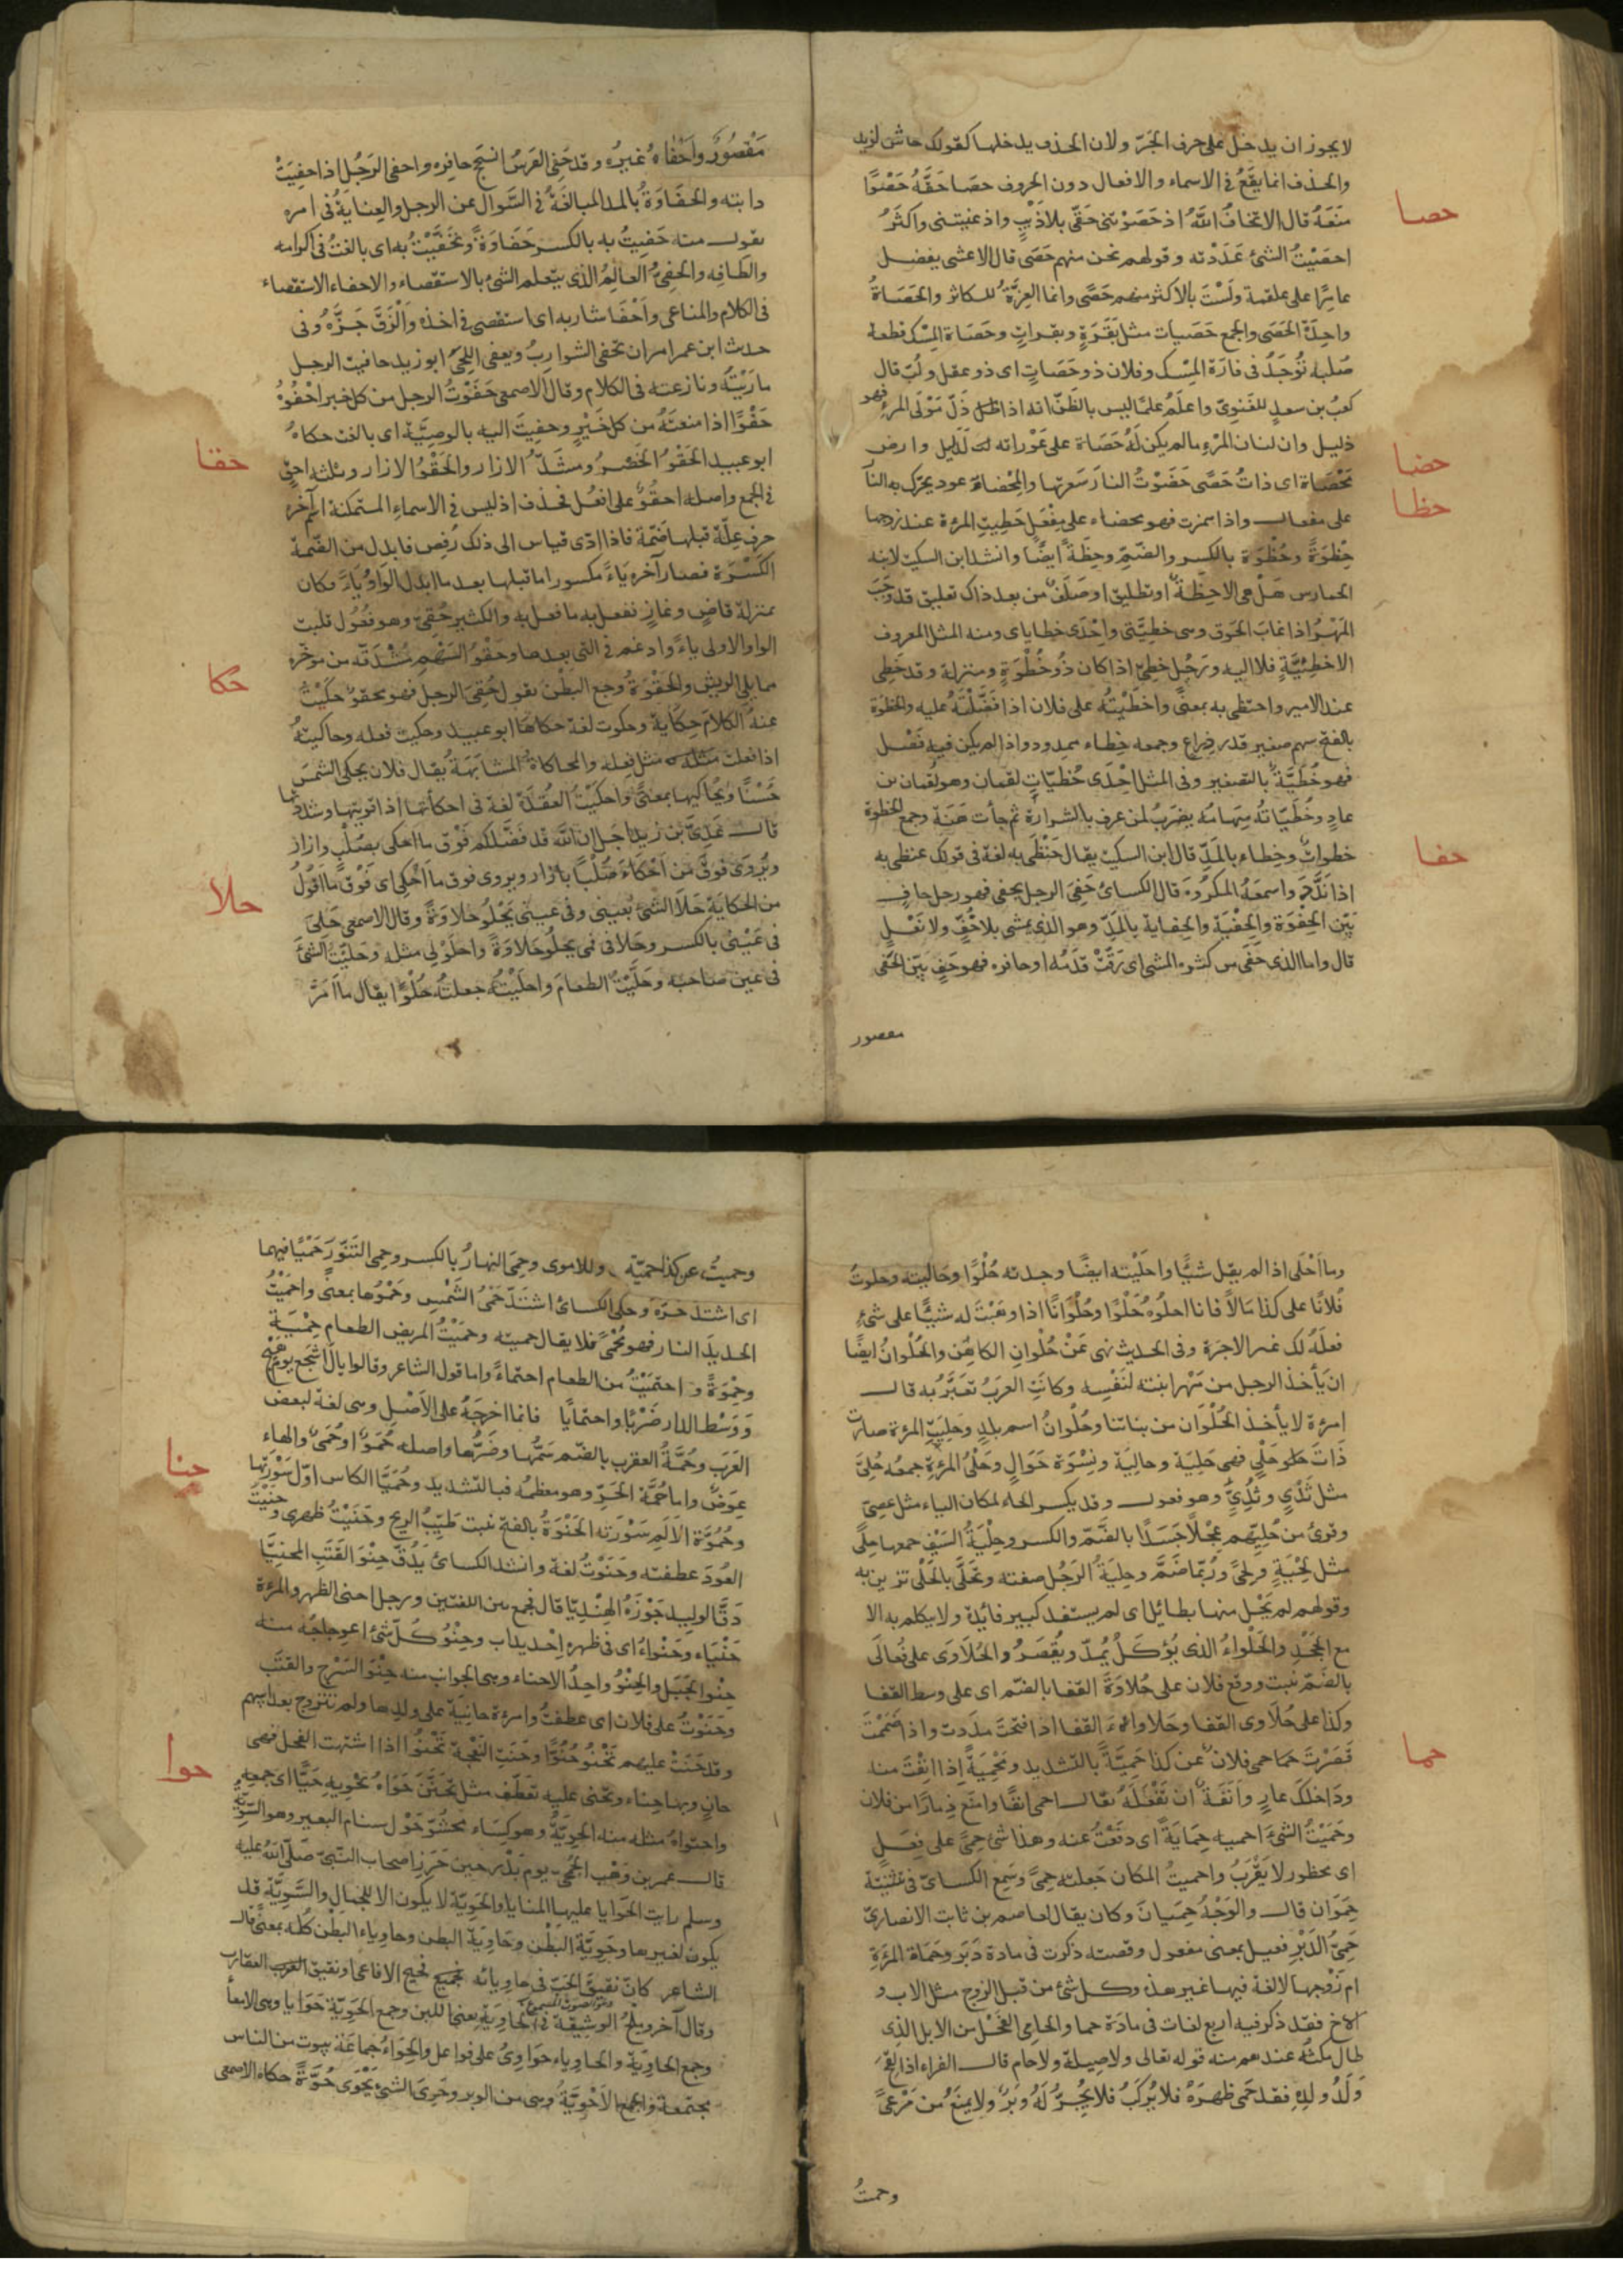 لا يجوز ان يدخل على حرف الجَرّ ولان الحذف يدخلها كقولك حاش لزيد
والحذف انما يقعُ فى الاسماء والافعال دون الحروف حصَا حَقَّهُ حَصْوًا
حصا
مَنَعَهُ قال الا تخافُ اللّٰهَ اذ حَصَوْتنى حَقّى بلا ذَنْبٍ واذ عنيتنى واكثرُ
احصَيْتُ الشئ عَدَدْته وقولهم نحن منهم حَصًى قال الاعشى يفضل
عامرًا على علقمة ولَسْتَ بالاكثر منهم حَصًى وانما العِزَّة للكاثر والحَصَاةُ
واحِدَةُ الحَصَى والجمع حَصَيات مثل بَقَرَةٍ وبقراتٍ وحَصَاة المِسْك قطعة
صُلبة تُوْجَدُ فى فارَة المِسْك وفلان ذو حَصَاتٍ اى ذو عقل ولُبّ قال
كعبُ بن سعدٍ الغَنوِىّ واعلَمُ علمًا ليس بالظَنّ انه اذا ذَلّ مَوْلَى المرءِ فهو
ذليل وان لسان المَرْءِ مالم يكن لَهُ حَصَاة على عَوْراته لدَليل وارض
حضا
مَحْصَاة اى ذاتُ حَصًى حَضَوْتُ النارَ سَعّرتها والمِحْضاة عود يحرّك به النا
حظا
على مفعال واذا همزت فهو محضاء على مِفْعَل حَظِيتِ المرءة عند زوجها
حِظْوَةً وحُظْوَة بالكسر والضَمّ وحِظَةً ايضًا وانشد ابن السكيت لابنة
الحمارس هَلْ هى الا حِظَةٌ او تطليق او صَلَفٌ من بعد ذاك تعليق قد وجَبَ
المَهْرُ اذا غابَ الحَوق وهى حَظِيَّتى واِحْدَى حظاياى ومنه المثل المعروف
الا حَظِيَّةً فلا اليه ورَجُل حَظِىّ اذا كان ذُو حُظْوَةٍ ومنزلة وقد حَظِى
عند الامير واحتظى به بمعنًى واحظَيْتُه على فلان اذا فَضَّلْتَهُ عليه والحَظْوَة
بالفتح سهم صغير قدر ذِراع وجمعه حِظاء ممدود واذا لم يكن فيه نَصْل
فهو حُظَيَّةٌ بالتصغير وفى المثل اِحْدَى حُظَيّاتِ لقمان وهو لُقمان بن
عادٍ وحُظَيّاتهُ سِهَامُه يضرَبُ لمن عرف بالشرارة ثم جأت هَنَة وجمع الحظوة
حظواتٌ وحِظاء بالمَدّ قال ابن السكيت يقال حَنْظَى به لغة فى قولك عنظى به
حفا
اذا نَدَّدَ واسمعَهُ المكرُوهَ قال الكسائى حَفِىَ الرجل يحفى فهو رجل حافٍ
بَيّن الحِفْوَة والحِفْيَة والحِفاية بالمَدّ وهو الذى يمشى بلا خُفٍّ ولا نَعْلٍ
قال واما الذى حَفَى من كثرة المشى اى رَقّتْ قدَمُه او حافره فهو حَفٍ بَيّن الحَفَى
مقصور
مَقْصُورٌ واَحْفاهُ غيرُه وقد حَفِىَ الفَرسُ انسَحَج حافِره واحفى الرَجُل اذا حفِيَتْ
دابته والحَفَاوَةُ بالمد المبالغَةُ فى السّوال عن الرجل والعِنايَةُ فى امره
تقول منه حَفِيتُ به بالكسر حَفَاوَةً وتَحَفَّيْتُ به اى بالغتُ فى اكرامه
والطَافِه والحَفِىُّ العالِمُ الذى يتعلم الشئ بالاستقصاء والاحفاء الاستقصاء
فى الكلام والمناعى واَحْفَا شاربه اى استقصى فى اخذه واَلْزَقَ جَزَّهُ وفى
حديث ابن عمر امر ان تحفى الشوارِبُ ويعفى اللِحَى ابو زيد حافيت الرجل
مارَيْتُه ونازعته فى الكلام وقال الاصمعى حَفَوْتُ الرجل من كل خبر احْفُوهُ
حَفْوًا اذا منعتَهُ من كل خَيْرٍ وحفِيتَ اليه بالوصِيَّة اى بالغت حكاهُ
حقا
ابو عبيد الحَقْوُ الخَصْرُ ومشَدّ الازار والحَقْوُ الازار وثلثة احقٍ
فى الجمع واصله احقُوٌ على افعُل فحُذف اذ ليس فى الاسماء المتمكنة اسم آخره
حرف عِلّة قبلها ضَمّة فاذا ادّى قياس الى ذلك رُفِض فابدل من الضّمة
الكَسْرَة فصار آخره يَاءً مكسورا ما قبلها بعد ما ابدل الوَاوُ يَاءً وكان
بمنزلة قاضٍ وغازٍ تفعل به ما فعل به والكثير حُقِىّ وهو فُعُول قلبت
الواو الاولى ياءً وادغم فى التى بعدها وحَقْوُ السَهْمِ مُسْتَدَقّه من مؤخّره
حكا
مما يلى الريش والحَقْوَةُ وجع البَطْن تقول حُقِىَ الرجل فهو محقوّ حكَيْتُ
عنهُ الكلامَ حِكَايةً وحكوت لغة حكاها ابو عبيد وحكيت فعله وحاكيتُهُ
اذا فعلت مثله مثل فعله والمحاكاة المشابَهَةُ يُقال فلان يحكى الشمسَ
حُسْنًا ويُحاكيها بمعنًى واحكَيْتُ العُقْدَةَ لغة فى احكأتها اذا قويتها وشددتها
قال عَدِىُّ بن زيد اجل ان اللّٰه قد فَضَّلكم فَوْق ما احكى بصُلْبٍ وازار
ويُرْوَى فوق من اَحْكَأَ صُلْبًا بازار ويروى فوق ما اَحْكِى اى فَوْق ما اقُولُ
حلا
من الحكاية حَلَا الشئ بعينى وفى عينى يَحْلُو حَلاوَةً وقال الاصمعى حَلِىَ
فى عَيْنى بالكسر وحَلا فى فمى يحلُو حَلاوَةً واحلَوْلى مثله وحَليْتُ الشئَ
فى عين صاحبه وحَلَّيْتُ الطعامَ واحلَيْتُه جعلتُه حُلْوًا يقال ما اَمَرَّ
وما اَحْلَى اذا لم يقل شيًّا واحلَيْته ايضًا وجدته حُلْوًا وحاليته وحلوتُ
فُلانًا على كذا مَالاً فانا احلُوهُ حَلْوًا وحُلْوَانًا اذا وهَبْتَ له شيًّا على شئٍ
فعلَهُ لك غير الاجرَة وفى الحديث نهى عَنْ حُلْوانِ الكاهِن والحُلْوانُ ايضًا
ان يأخذ الرجل من مَهْر ابنته لنَفْسه وكانَتِ العرَبُ تعَيّرُ به قال
امرءة لا يأخذ الحُلْوَان من بناتنا وحُلْوانُ اسم بلدٍ وحَلِيَتِ المرءة صارت
ذَاتَ حَلْىٍ فهى حَلِيَة وحالِيَة ونِسْوَة حَوَالٍ وحَلْىُ المرءةِ جمعُه حُلِىّ
مثل ثَدْىٍ وثُدِىٍّ وهو فعول وقد يكسر الحاء لمكان الياء مثل عِصِىّ
وقرئ من حُلِيّهم عِجْلاً جَسَدًا بالضَّمّ والكسر وحِلْيَةُ السَيْف جمعها حِلًى
مثل لِحْيَةٍ ولِحًى ورُبّما ضَمَّ وحِليَةُ الرَجُل صفته وتَحَلَّى بالحَلْى تزين به
وقولهم لم يَحْلَ منها بطائل اى لم يستفد كبير فايدة ولا يتكلم به الا
مع الجَحْدِ والحَلْواءُ الذى يُؤكَلُ يُمدّ ويُقْصَرُ والحُلَاوَى على فُعالَى
بالضمّ نبت ووقع فلان على حُلاوَةَ القفا بالضّم اى على وسط القفا
وكذا على حُلَاوى القفا وحَلاواءِ القفا اذا فتحتَ مدَدت واذا ضمَمْتَ
حما
قَصَرْتَ حمَا حمى فلانٌ عن كذا حَمِيّةً بالتشديد ومَحْمِيَةً اِذا انِفْتَ منه
ودَاخَلَكَ عارٍ واَنَفَةٌ ان تَفْعَلَهُ يقال احمى انفًا وامنع ذِمارًا من فلان
وحَمَيْتُ الشئَ احميه حِمَايَةً اى دفَعْتُ عنه وهذا شئ حِمًى على فِعَلٍ
اى محظور لا يَقْرَبُ واحميتُ المكان جعلته حِمًى وسَمِع الكسائىّ فى تثنيَة
حِمَوَان قال والوَجْهُ حِمَيان وكان يقال لعاصم بن ثابت الانصارىّ
حَمِىُّ الدَبْرِ فعيل بمعنى مفعول وقصته ذكرت فى مادة دَبَر وحَمَاة المرءَةِ
ام زَوْجها لا لغة فيها غير هذه وكل شئ من قبل الزوج مثل الاب و
الاخ فقد ذكر فيه اربع لغات فى مادَة حما والحامى الفَحْل من الابل الذى
طال مكثُه عندهم منه قوله تعالى ولا وصيلة ولا حام قال الفراء اذا لقِحَ
وَلَدُ ولدِه فقد حَمى ظهرَهُ فلا يُركَبُ فلا يُجَزُّ لَهُ وَبَرٌ ولا يمنَعُ من مَرْعًى
وحميتُ
وحميتُ عن كذا حمِيّة وللاموى وحِمىَ النهارُ بالكسر وحِمى التَنّورَ حَمْيًا فيهما
اى اشتد حَرّه وحكى الكسائىُّ اشتدّ حَمْىُ الشَّمْس وحَمْوُها بمعنًى واحمَيْتُ
الحديدَ النار فهو مُحْمًى فلا يقال حميته وحمَيْتُ المريض الطعام حِمْيَة
وحِمْوَةً واحتمَيْتُ من الطعام احتماءً واما قول الشاعر وقالوا يالَ اَشْجَع يومَ هَيْجٍ
وَوَسْط الدار ضَرْبًا واحتمايًا فانما اخرجَهُ على الاَصْل وهى لغة لبعض
العَرَب وحُمَةُ العقرب بالضّم سَمُّها وضَرُّها واصله حُمَوٌ او حُمَىٌ والهاء
حنا
عِوَضٌ واما حُمَّة الحَرّ وهو معظمُه فبالتشديد وحُمَيّا الكاس اوّل سَوْرَتِها
وحُمُوَّة الاَلَمِ سَوْرَته الحَنْوَةُ بالفتح نبت طَيِّبُ الريح وحَنَيْتُ ظهرى وحنَيْتُ
العُودَ عطفته وحَنَوْتُ لغة وانشد الكسائى يَدُقّ حِنْوَ القَتَبِ المحنِيّا
دَقَّ الوليدِ جَوْزَهُ الهِنْدِيّا قال فجمع بين اللغتين ورجل احنى الظهر والمرءة
حَنْياء وحَنْواءُ اى فى ظهره اِحْديدابٌ وحِنْوُ كَلّ شئ اعوِجاجُه منه
حِنْو الجَبَل والحِنْوُ واحِدُ الاحناء وهى الجوانب منه حِنْوَ السَرْج والقتَب
وحَنَوْتُ على فلان اى عطفتُ وامرءة حانِيَة على ولدها ولم تتزوج بعد ابيهم
وقد حَنَتْ عليهم تَحْنُو حُنُوًّا وحَنَتِ النَعْجَة تَحْنُوا اذا اشتهت الفحل فهى
حوا
حانٍ وبها حِناء وتحَنى عليه تعَطّف مثل تحَنَّن حَوَاهُ يَحْويهِ حَيًّا اى جمعه
واحتواهُ مثله منه الحَوِيَّةُ وهو كِسَاء محشُوّ حَوْل سنام البعير وهو السَّوِيّةُ
قال عُمر بن وَهْب الجُمَحِىّ يوم بَدْر حين حَرَز اصحاب النّبىّ صَلّى اللّٰهُ عليه
وسلم رايت الحَوايا عليها المنايا والحَوِيّةُ لا يكون الا للجمال والسَّوِيَّة قد
يكون لغيرها وحَوِيَّة البَطْن وحَاوِيَة البطن وحاوِياء البَطْن كُلّه بمعنًى قال
الشاعر كانّ نقيقَ الحَبّ فى حاويائه فحيح الافاعى او نقيق العقارب
وقال آخر وملح الوشِيقة فى الحاوِيَةِ يعنى اللبن وجمع الحَوِيّة حَوَايا وهى الامعا
وجمع الحاوِيَة والحاوياء حَوَاوِىُ على فواعل والحِوَاءُ جماعَة بيوت من الناس
مجتمعة والجمع الاَحْوِيَّةُ وهى من الوبر وحَوِىَ الشئ يَحْوَى حُوَّةً حكاه الاصمعى